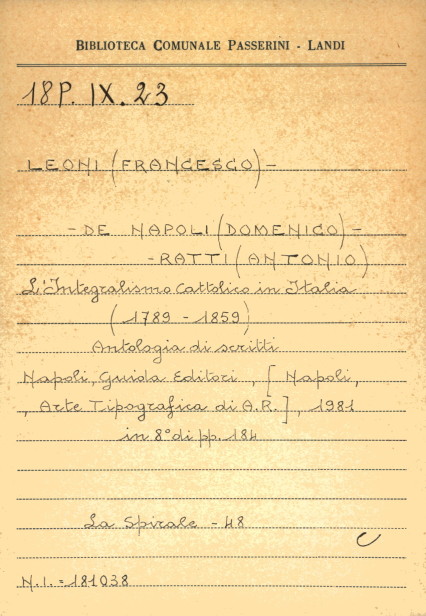 BIBLIOTECA COMUNALE PASSERINI - LANDI
18P. IX. 23
LEONI (FRANCESCO) -
- DE NAPOLI (DOMENICO) -
- RATTI (ANTONIO)
L'Integralismo Cattolico in Italia
(1789 - 1859)
Antologia di scritti
Napoli, Guida Editori, [Napoli,
, Arte Tipografica di A.R.], 1981
in 8° di pp. 184
La Spirale - 48
C
N.I. = 181038